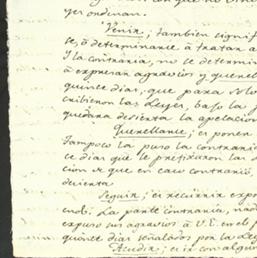 yer ordenan.
Venir; tambien signifi
se, ó determinarse á tratar a
Y la contraria, no se determin
á expresar agravios y querell
quince dias, que para solo
cribieron las Leyes, baxo la
quedaria desierta la apelacion
Querellante; si ponen
Tampoco la puso la contrario
ce dias que le prefixaron las
cion de que en caso contrario
decierta
Seguir; es recurrir expon
La parte contraria, na
expuso sus agravios á V.E. en el p
quince dias señalados por la Ley
Acudir; es ir con algun